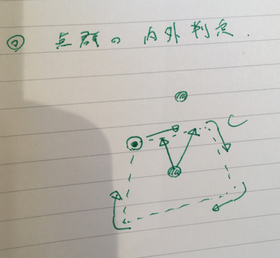 ◎ 点群の内外判定.
C